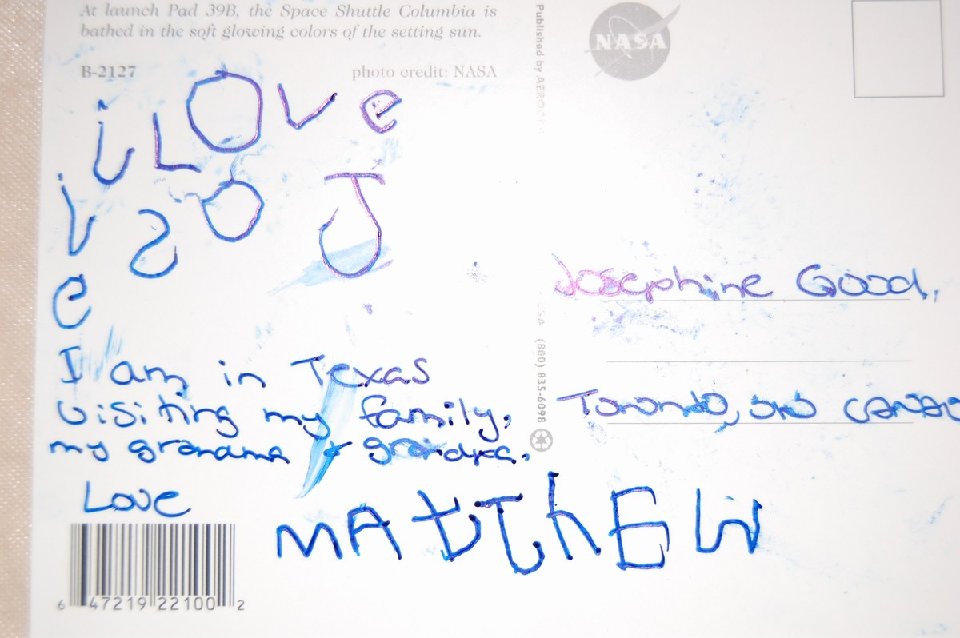 At launch Pad 39B, the Space Shuttle Columbia is
bathed in the soft glowing colors of the setting sun.
B-2127
photo credit: NASA
i LOVe
I am in Texas
visiting my family,
my grandma & grandpa.
Love
MATTHEW
6 47219 22100 2
Published by
(800) 835-6098
NASA
Josephine Good,
Toronto, Ont